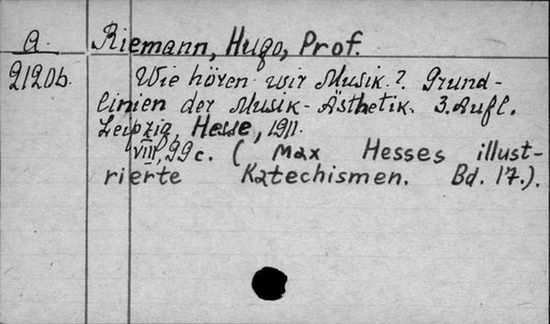 a. Riemann, Hugo, Prof.
2120b. Wie hören wir Musik? Grund-
linien der Musik-Ästhetik. 3. Aufl.
Leipzig, Hesse, 1911.
VIII, 99 c. (Max Hesses illust-
rierte Katechismen. Bd. 17.).